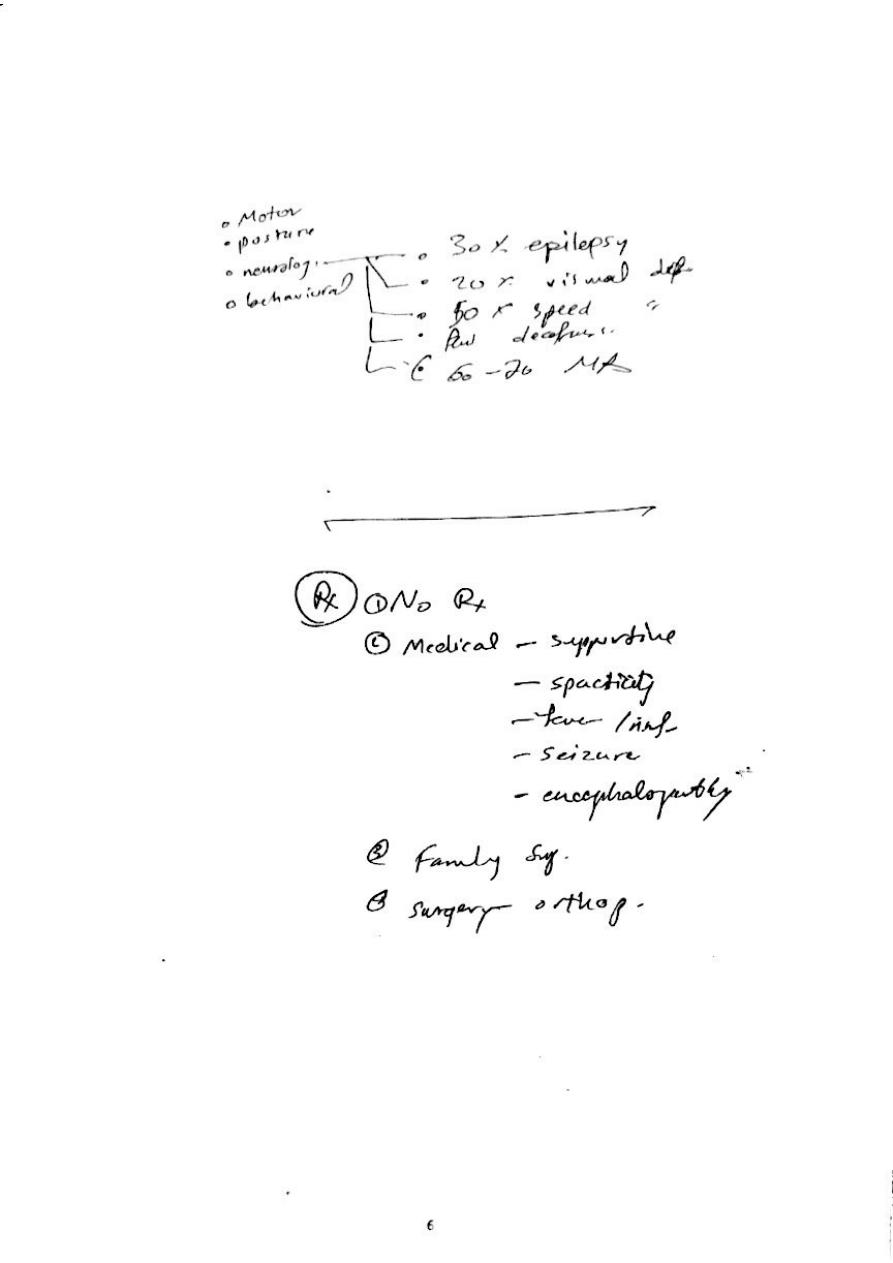 • Motor
• posture
• neurolog.
• behavioural
• 30 % epilepsy
• 20 % visual def.
• 50 % speed "
• few deafness.
• 60 - 70 MR
Rx ① No Rx
② Medical - supportive
- spacticity
- fever / inf.
- seizure
- encephalopathy
③ Family Sup.
④ surgery orthop.
6